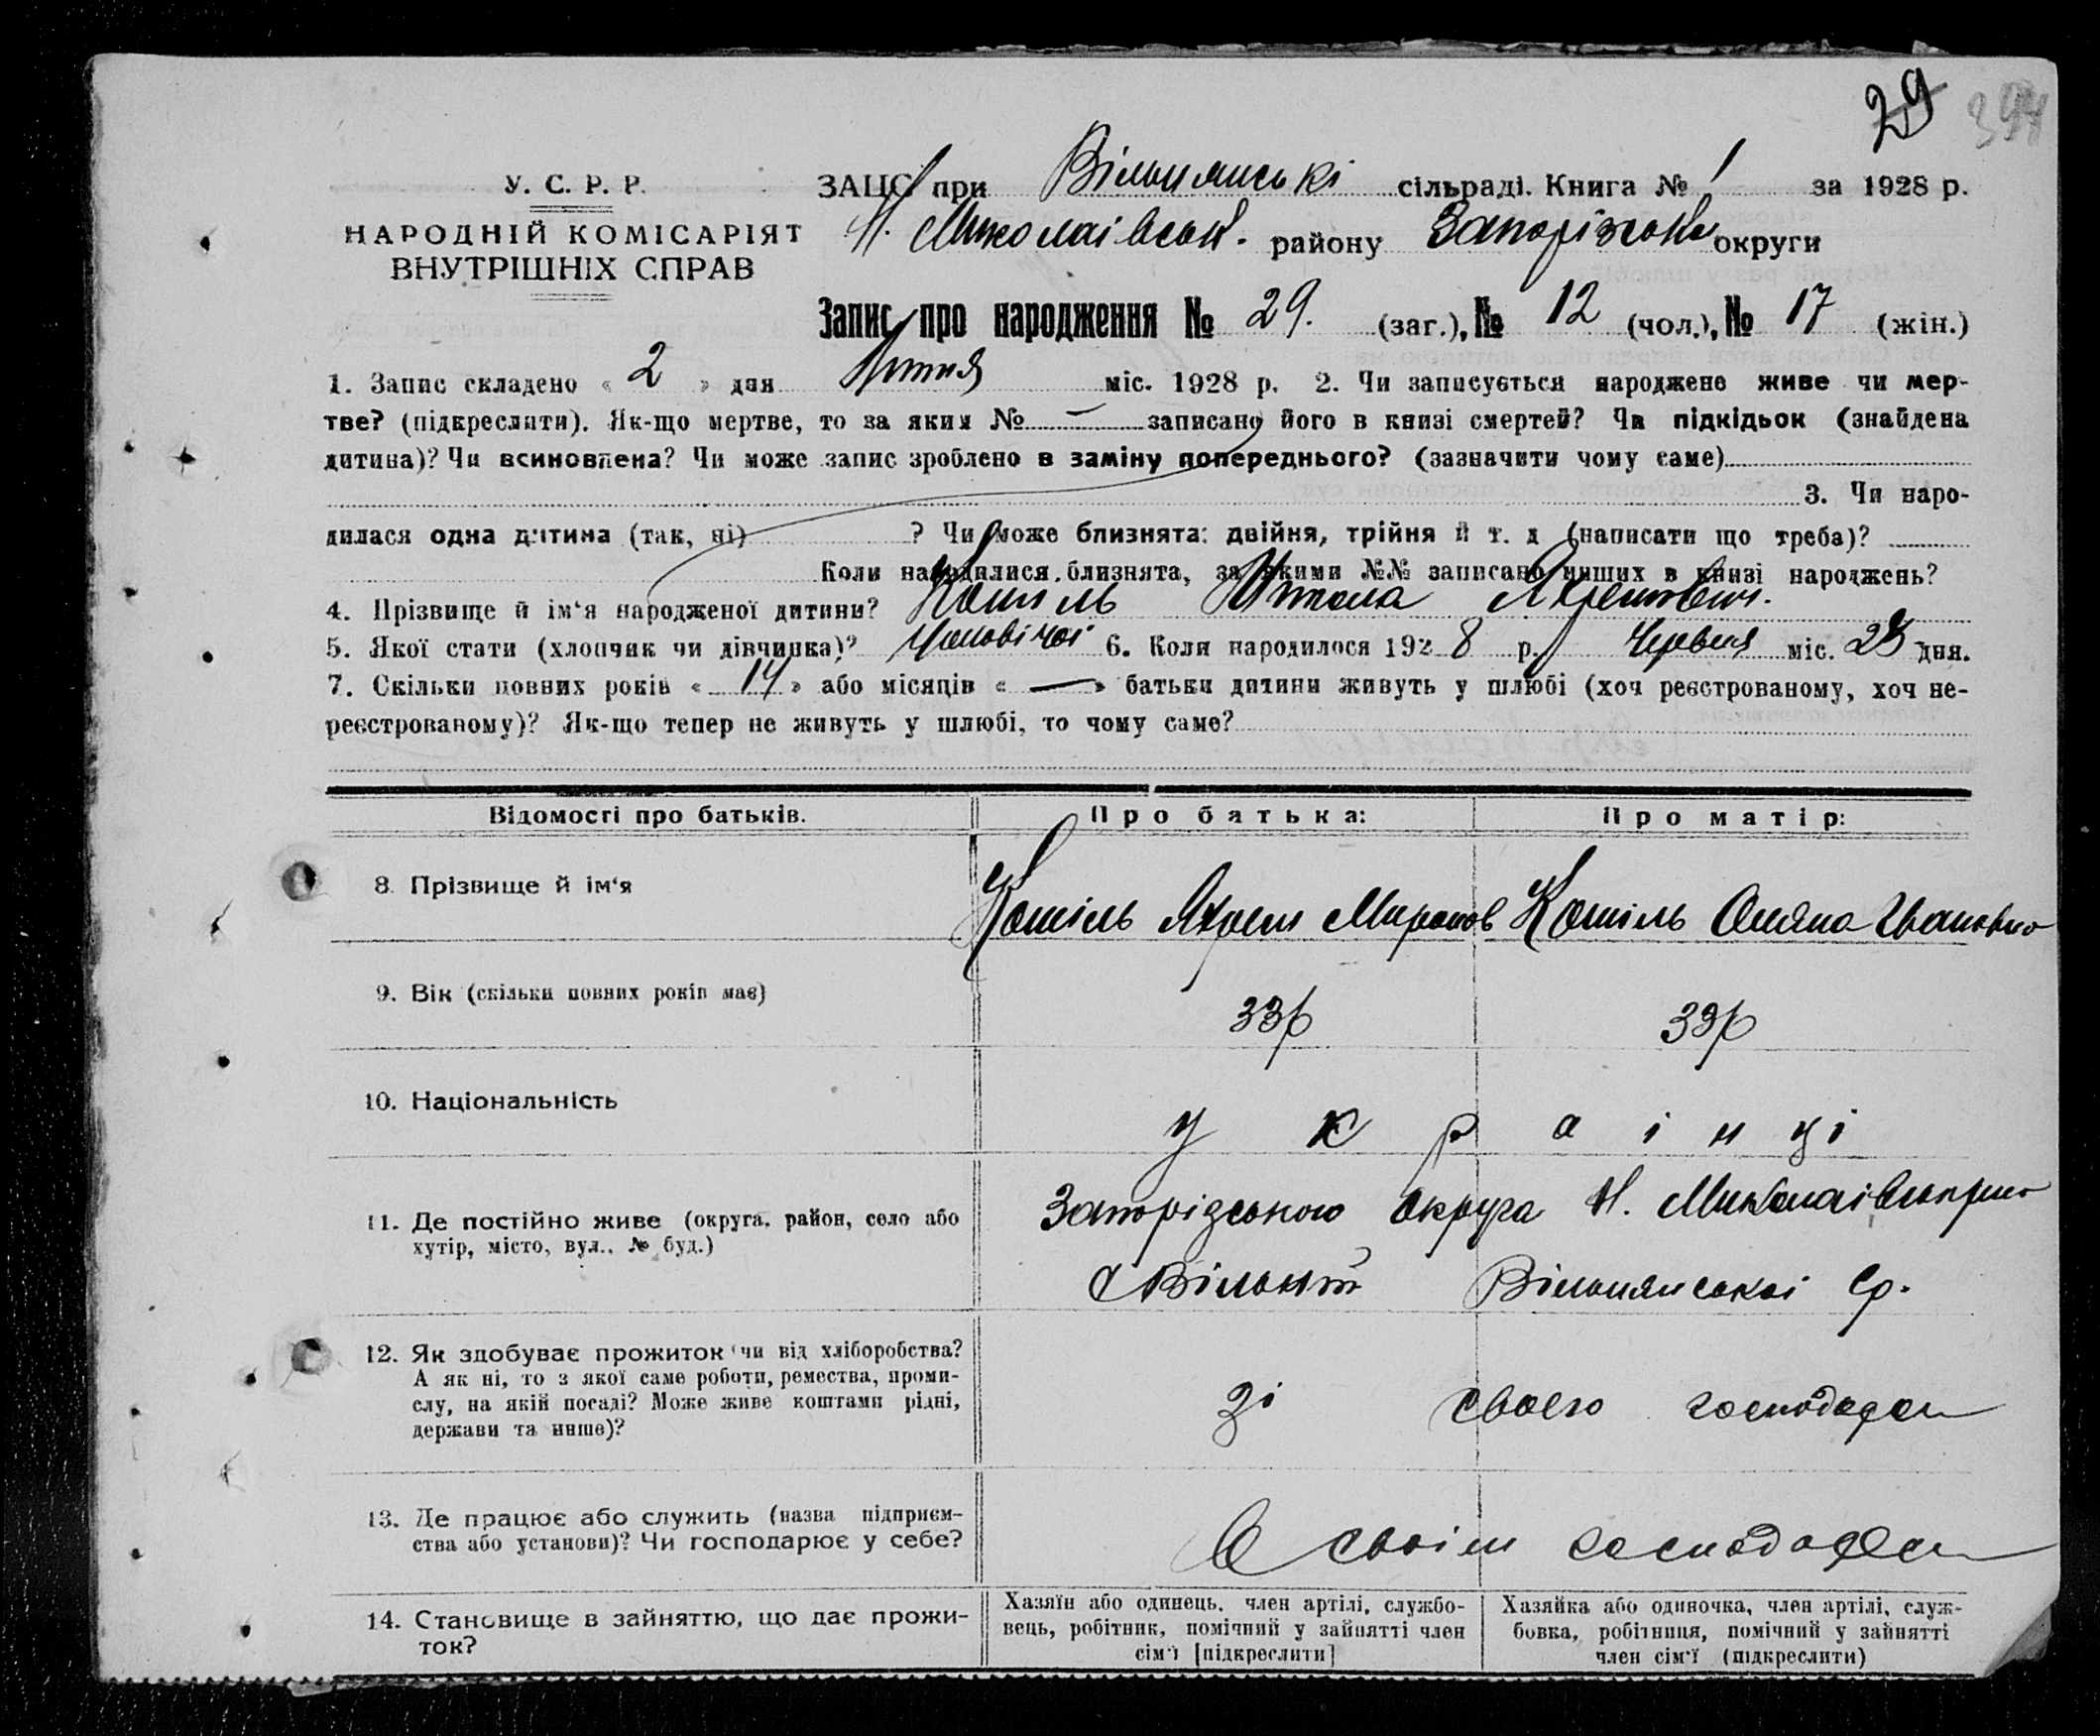 29 394
У. С. Р. Р.
НАРОДНІЙ КОМІСАРІЯТ
ВНУТРІШНІХ СПРАВ
ЗАЦС при Вільнянські сільраді. Книга № 1 за 1928 р.
Н. Миколаівськ. району Запорізько округи
Запис про народження № 29. (заг.), № 12 (чол.), № 17 (жін.)
1. Запис складено « 2 » дня Липня міс. 1928 р. 2. Чи записується народжене живе чи мер-
тве? (підкреслити). Як-що мертве, то за яким № — записано його в книзі смертей? Чи підкідьок (знайдена
дитина)? Чи всиновлена? Чи може запис зроблено в заміну попереднього? (зазначити чому саме)
3. Чи наро-
дилася одна дитина (так, ні) ? Чи може близнята: двійня, трійня й т. д (написати що треба)?
Коли народилися близнята, за якими №№ записано инших в книзі народжень?
4. Прізвище й ім'я народженої дитини?
5. Якої стати (хлопчик чи дівчинка)? Чоловічоі 6. Коли народилося 1928 р. Червня міс. 28 дня.
7. Скільки повних років « 14 » або місяців « — » батьки дитини живуть у шлюбі (хоч реєстрованому, хоч не-
реєстрованому)? Як-що тепер не живуть у шлюбі, то чому саме?
Відомості про батьків. Про батька: Про матір:
8. Прізвище й ім'я Кошіль Яхрем Миронов Кошіль Оляна Івановно
9. Вік (скільки повних років має) 33р 33р
10. Національність украінці
11. Де постійно живе (округа, район, село або
хутір, місто, вул., № буд.)
Запорізького округа Н. Миколаівського
с Вільний Вільнянськоі ср.
12. Як здобуває прожиток чи від хліборобства?
А як ні, то з якої саме роботи, ремества, проми-
слу, на якій посаді? Може живе коштами рідні,
держави та инше)?
зі своего господар
13. Де працює або служить (назва підприєм-
ства або установи)? Чи господарює у себе?
в своім господар
14. Становище в зайняттю, що дає прожи-
ток?
Хазяїн або одинець, член артілі, службо-
вець, робітник, помічний у зайнятті член
сім'ї [підкреслити]
Хазяйка або одиночка, член артілі, служ-
бовка, робітниця, помічний у зайнятті
член сім'ї (підкреслити)